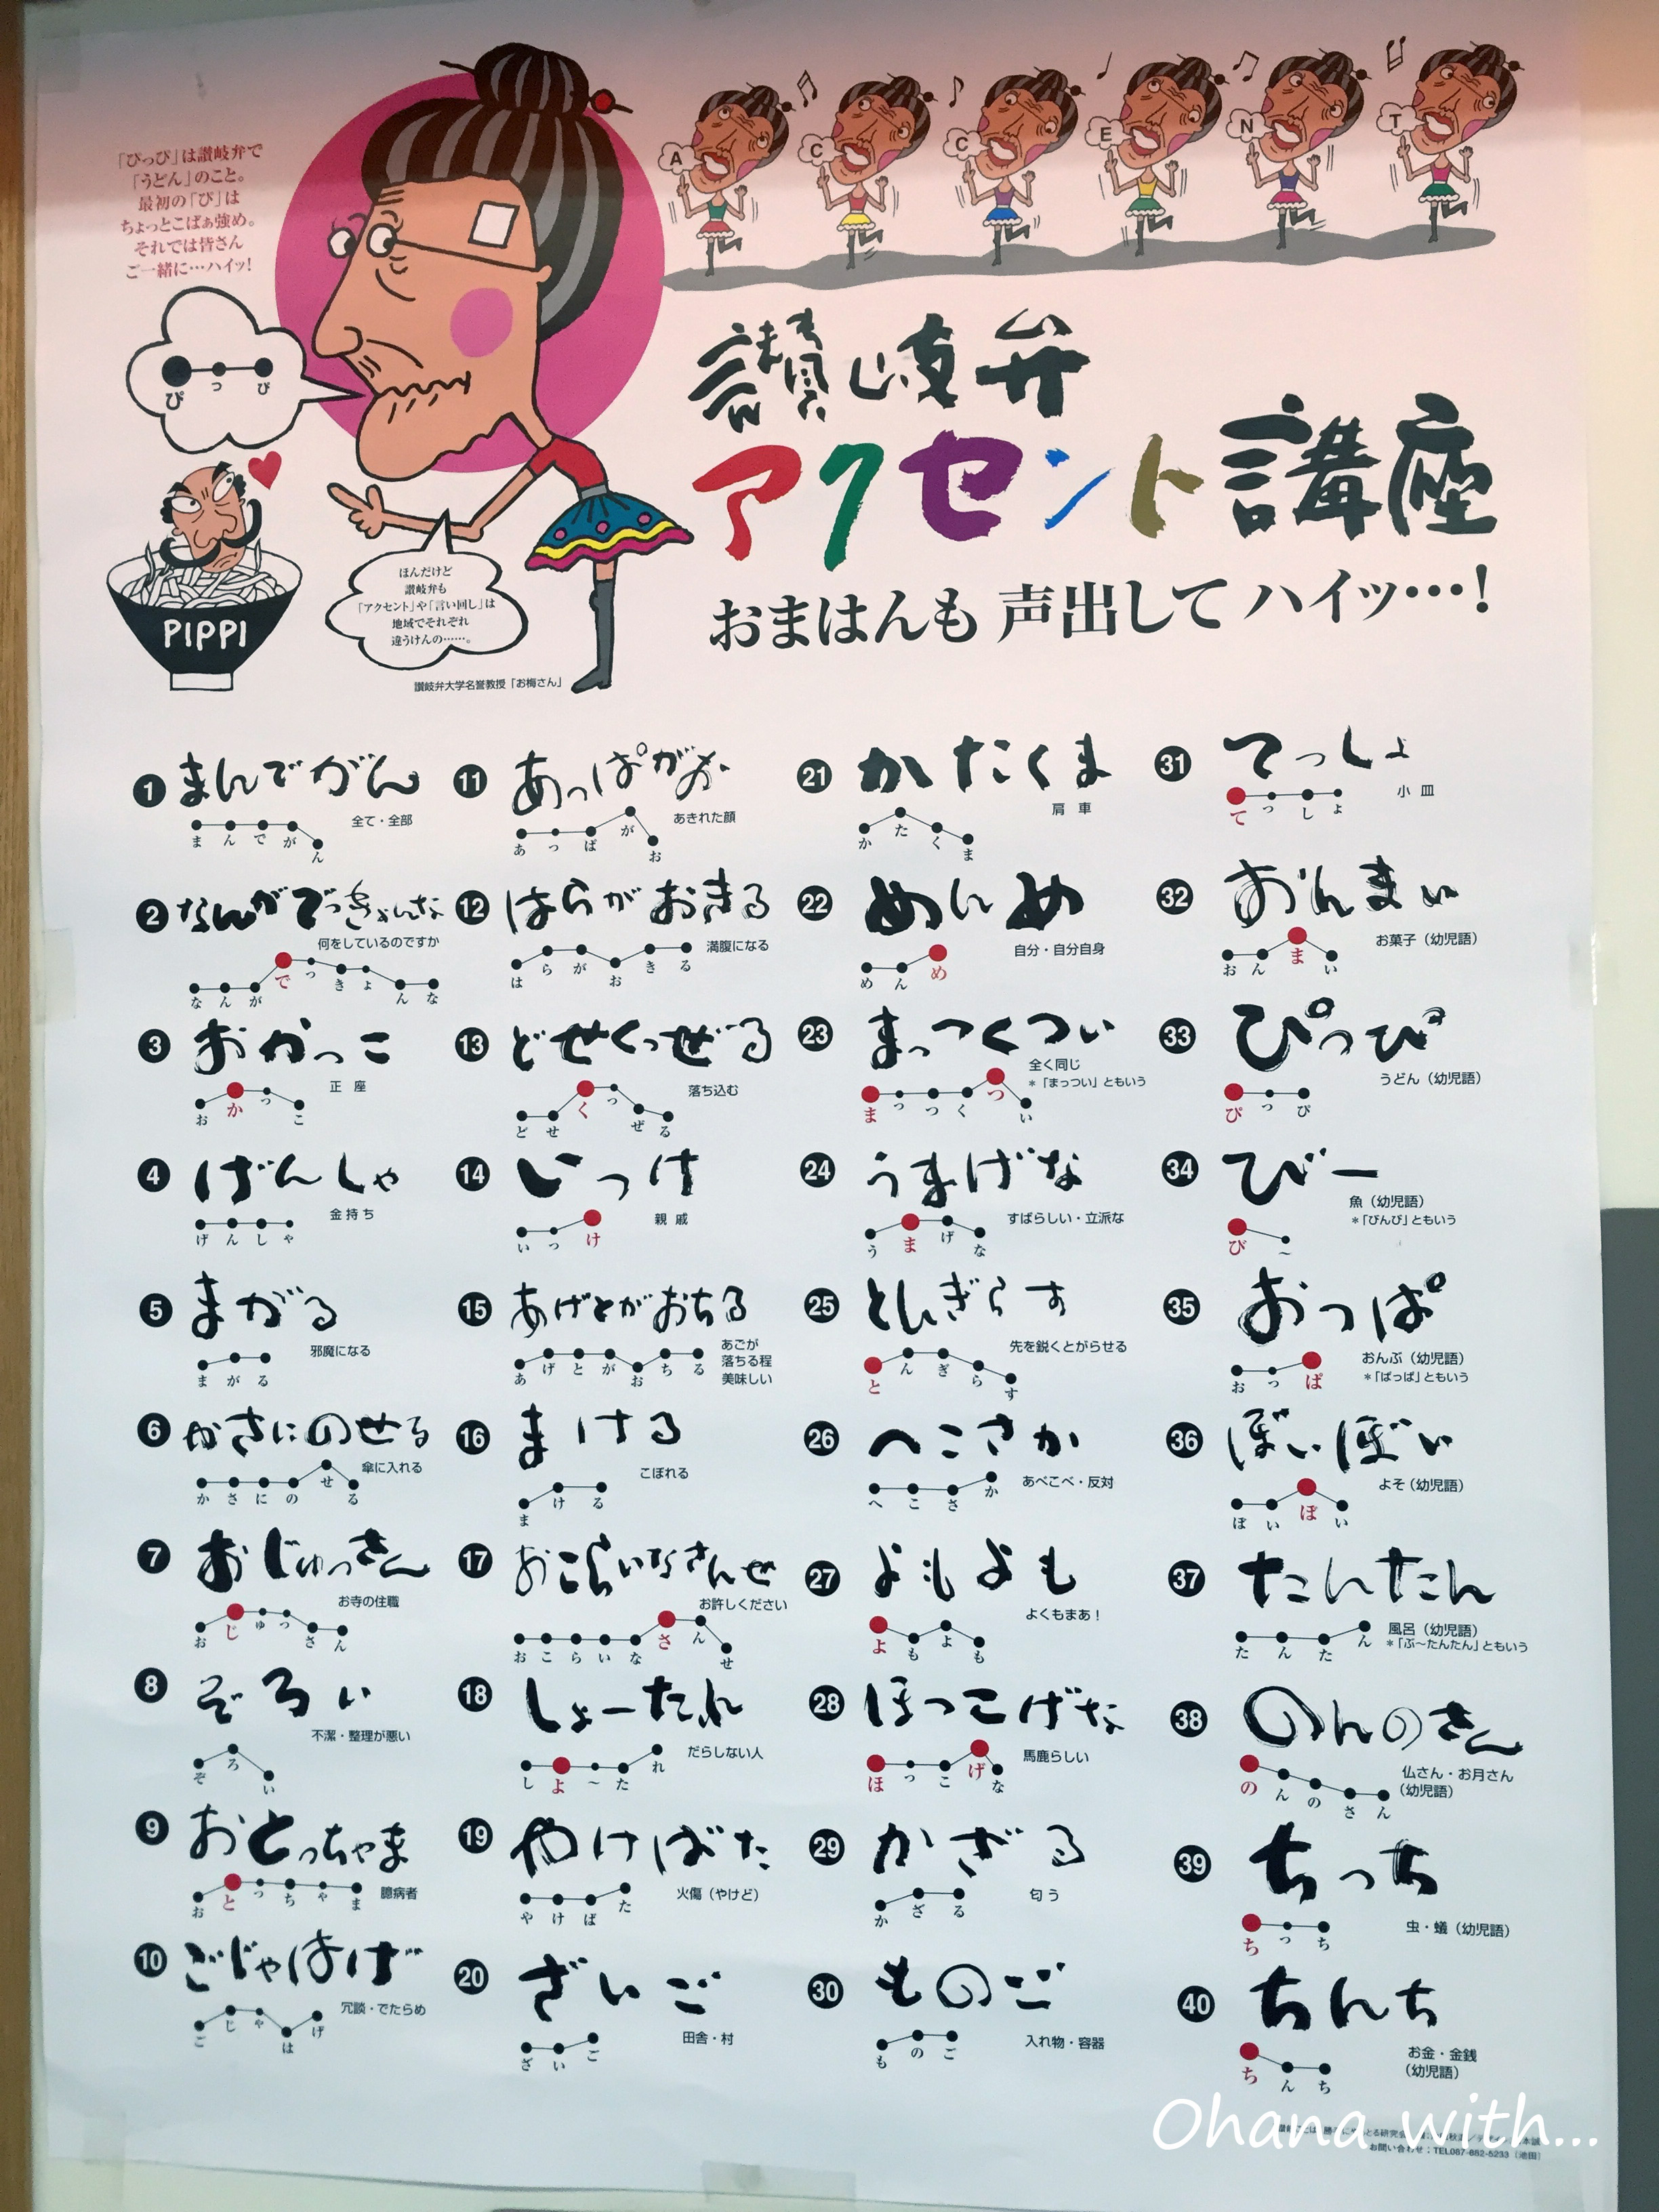 「ぴっぴ」は讃岐弁で
「うどん」のこと。
最初の「ぴ」は
ちょっとこばぁ強め。
それでは皆さん
ご一緒に…ハイッ!
ぴっぴ
PIPPI
ほんだけど
讃岐弁も
「アクセント」や「言い回し」は
地域でそれぞれ
違うけんの……。
讃岐弁大学名誉教授「お梅さん」
A C C E N T
讃岐弁
アクセント講座
おまはんも 声出して ハイッ…!
1 まんでがん
全て・全部
まんでがん
2 なんがでっきょんな
何をしているのですか
なんがでっきょんな
3 おかっこ
正座
おかっこ
4 げんしゃ
金持ち
げんしゃ
5 まがる
邪魔になる
まがる
6 かさにのせる
傘に入れる
かさにのせる
7 おじゅっさん
お寺の住職
おじゅっさん
8 ぞろい
不潔・整理が悪い
ぞろい
9 おとっちゃま
臆病者
おとっちゃま
10 ごじゃはげ
冗談・でたらめ
ごじゃはげ
11 あっぱがお
あきれた顔
あっぱがお
12 はらがおきる
満腹になる
はらがおきる
13 どせくっぜる
落ち込む
どせくっぜる
14 いっけ
親戚
いっけ
15 あげとがおちる
あごが
落ちる程
美味しい
あげとがおちる
16 まける
こぼれる
まける
17 おこらいなさんせ
お許しください
おこらいなさんせ
18 しょーたれ
だらしない人
しょ〜たれ
19 やけばた
火傷（やけど）
やけばた
20 ざいご
田舎・村
ざいご
21 かたくま
肩車
かたくま
22 めんめ
自分・自分自身
めんめ
23 まっつくつい
全く同じ
＊「まっつい」ともいう
まっつくつい
24 うまげな
すばらしい・立派な
うまげな
25 とんぎらす
先を鋭くとがらせる
とんぎらす
26 へこさか
あべこべ・反対
へこさか
27 よもよも
よくもまあ！
よもよも
28 ほっこげな
馬鹿らしい
ほっこげな
29 かざる
匂う
かざる
30 ものご
入れ物・容器
ものご
31 てっしょ
小皿
てっしょ
32 おんまい
お菓子（幼児語）
おんまい
33 ぴっぴ
うどん（幼児語）
ぴっぴ
34 びー
魚（幼児語）
＊「びんび」ともいう
び〜
35 おっぱ
おんぶ（幼児語）
＊「ばっぱ」ともいう
おっぱ
36 ぽいぽい
よそ（幼児語）
ぽいぽい
37 たんたん
風呂（幼児語）
＊「ぶ〜たんたん」ともいう
たんたん
38 のんのさん
仏さん・お月さん
（幼児語）
のんのさん
39 ちっち
虫・蟻（幼児語）
ちっち
40 ちんち
お金・金銭
（幼児語）
ちんち
Ohana with...
お問い合わせ：TEL087-882-5233［池田］